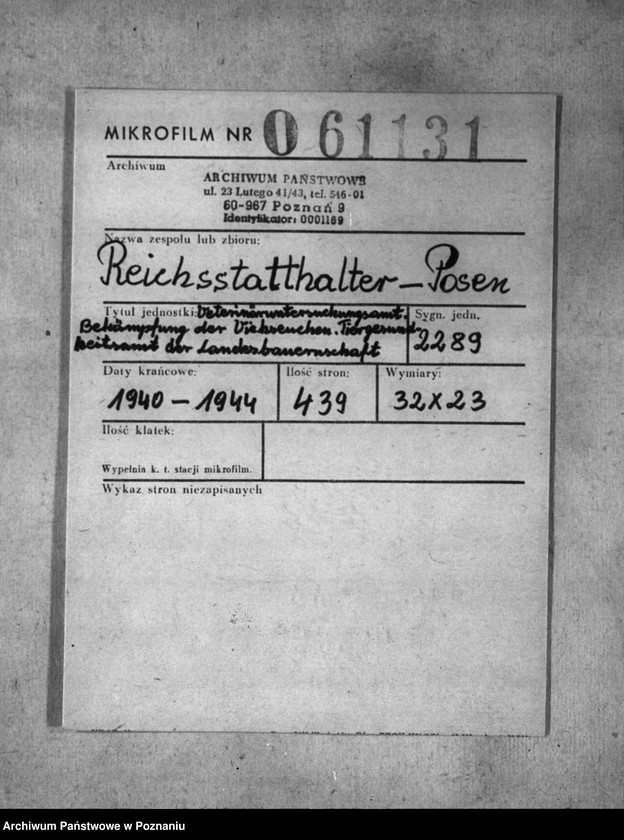 MIKROFILM NR 061131
Archiwum
ARCHIWUM PAŃSTWOWE
ul. 23 Lutego 41/43, tel. 546-01
60-967 Poznań 9
Identyfikator: 0001169
Nazwa zespołu lub zbioru:
Reichsstatthalter - Posen
Tytuł jednostki: Veterinäruntersuchungsamt.
Bekämpfung der Viehseuchen. Tiergesund
heitsamt der Landesbauernschaft
Sygn. jedn.
2289
Daty krańcowe:
1940 - 1944
Ilość stron:
439
Wymiary:
32x23
Ilość klatek:
Wypełnia k. t. stacji mikrofilm.
Wykaz stron niezapisanych
Archiwum Państwowe w Poznaniu